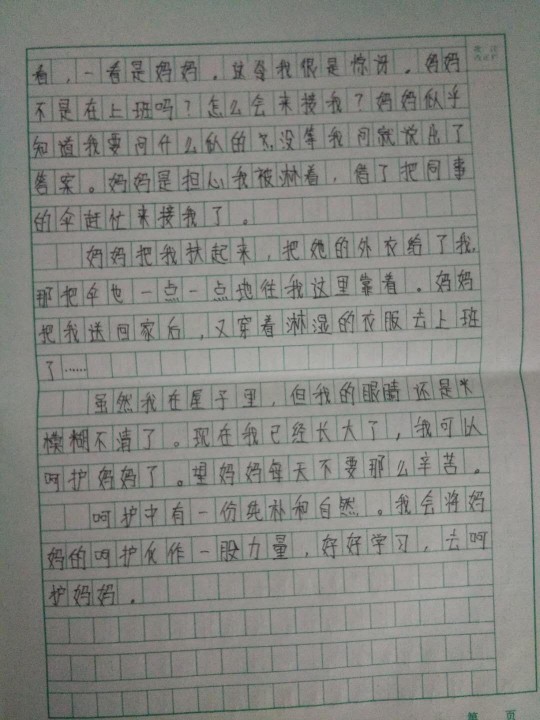 看，一看是妈妈。这令我很是惊讶。妈妈
不是在上班吗？怎么会来接我？妈妈似乎
知道我要问什么似的，没等我问就说出了
答案。妈妈是担心我被淋着，借了把同事
的伞赶忙来接我了。
妈妈把我扶起来，把她的外衣给了我，
那把伞也一点一点地往我这里靠着。妈妈
把我送回家后，又穿着淋湿的衣服去上班
了……
虽然我在屋子里，但我的眼睛还是
模糊不清了。现在我已经长大了，我可以
呵护妈妈了。望妈妈每天不要那么辛苦。
呵护中有一份纯朴和自然。我会将妈
妈的呵护化作一股力量，好好学习，去呵
护妈妈。
第 页